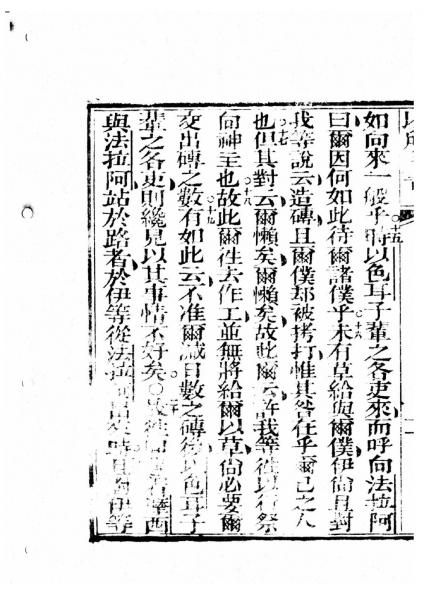 如向來一般乎○十五時以色耳子輩之各吏來而呼向法拉阿
曰爾因何如此待爾諸僕乎○十六未有草給與爾僕伊尚且對
我等說云造磚且爾僕却被拷打惟其咎在乎爾己之人
也○十七但其對云爾懶矣爾懶矣故此爾云許我等徃以行祭
向神主也○十八故此爾徃去作工並無將給爾以草尚必要爾
交出磚之數○十九有如此云不准爾減日數之磚 以色耳子
輩之各吏則纔見以其事情不好矣○ 西
與法拉阿站於路者於伊等從法拉阿出來時且 伊等